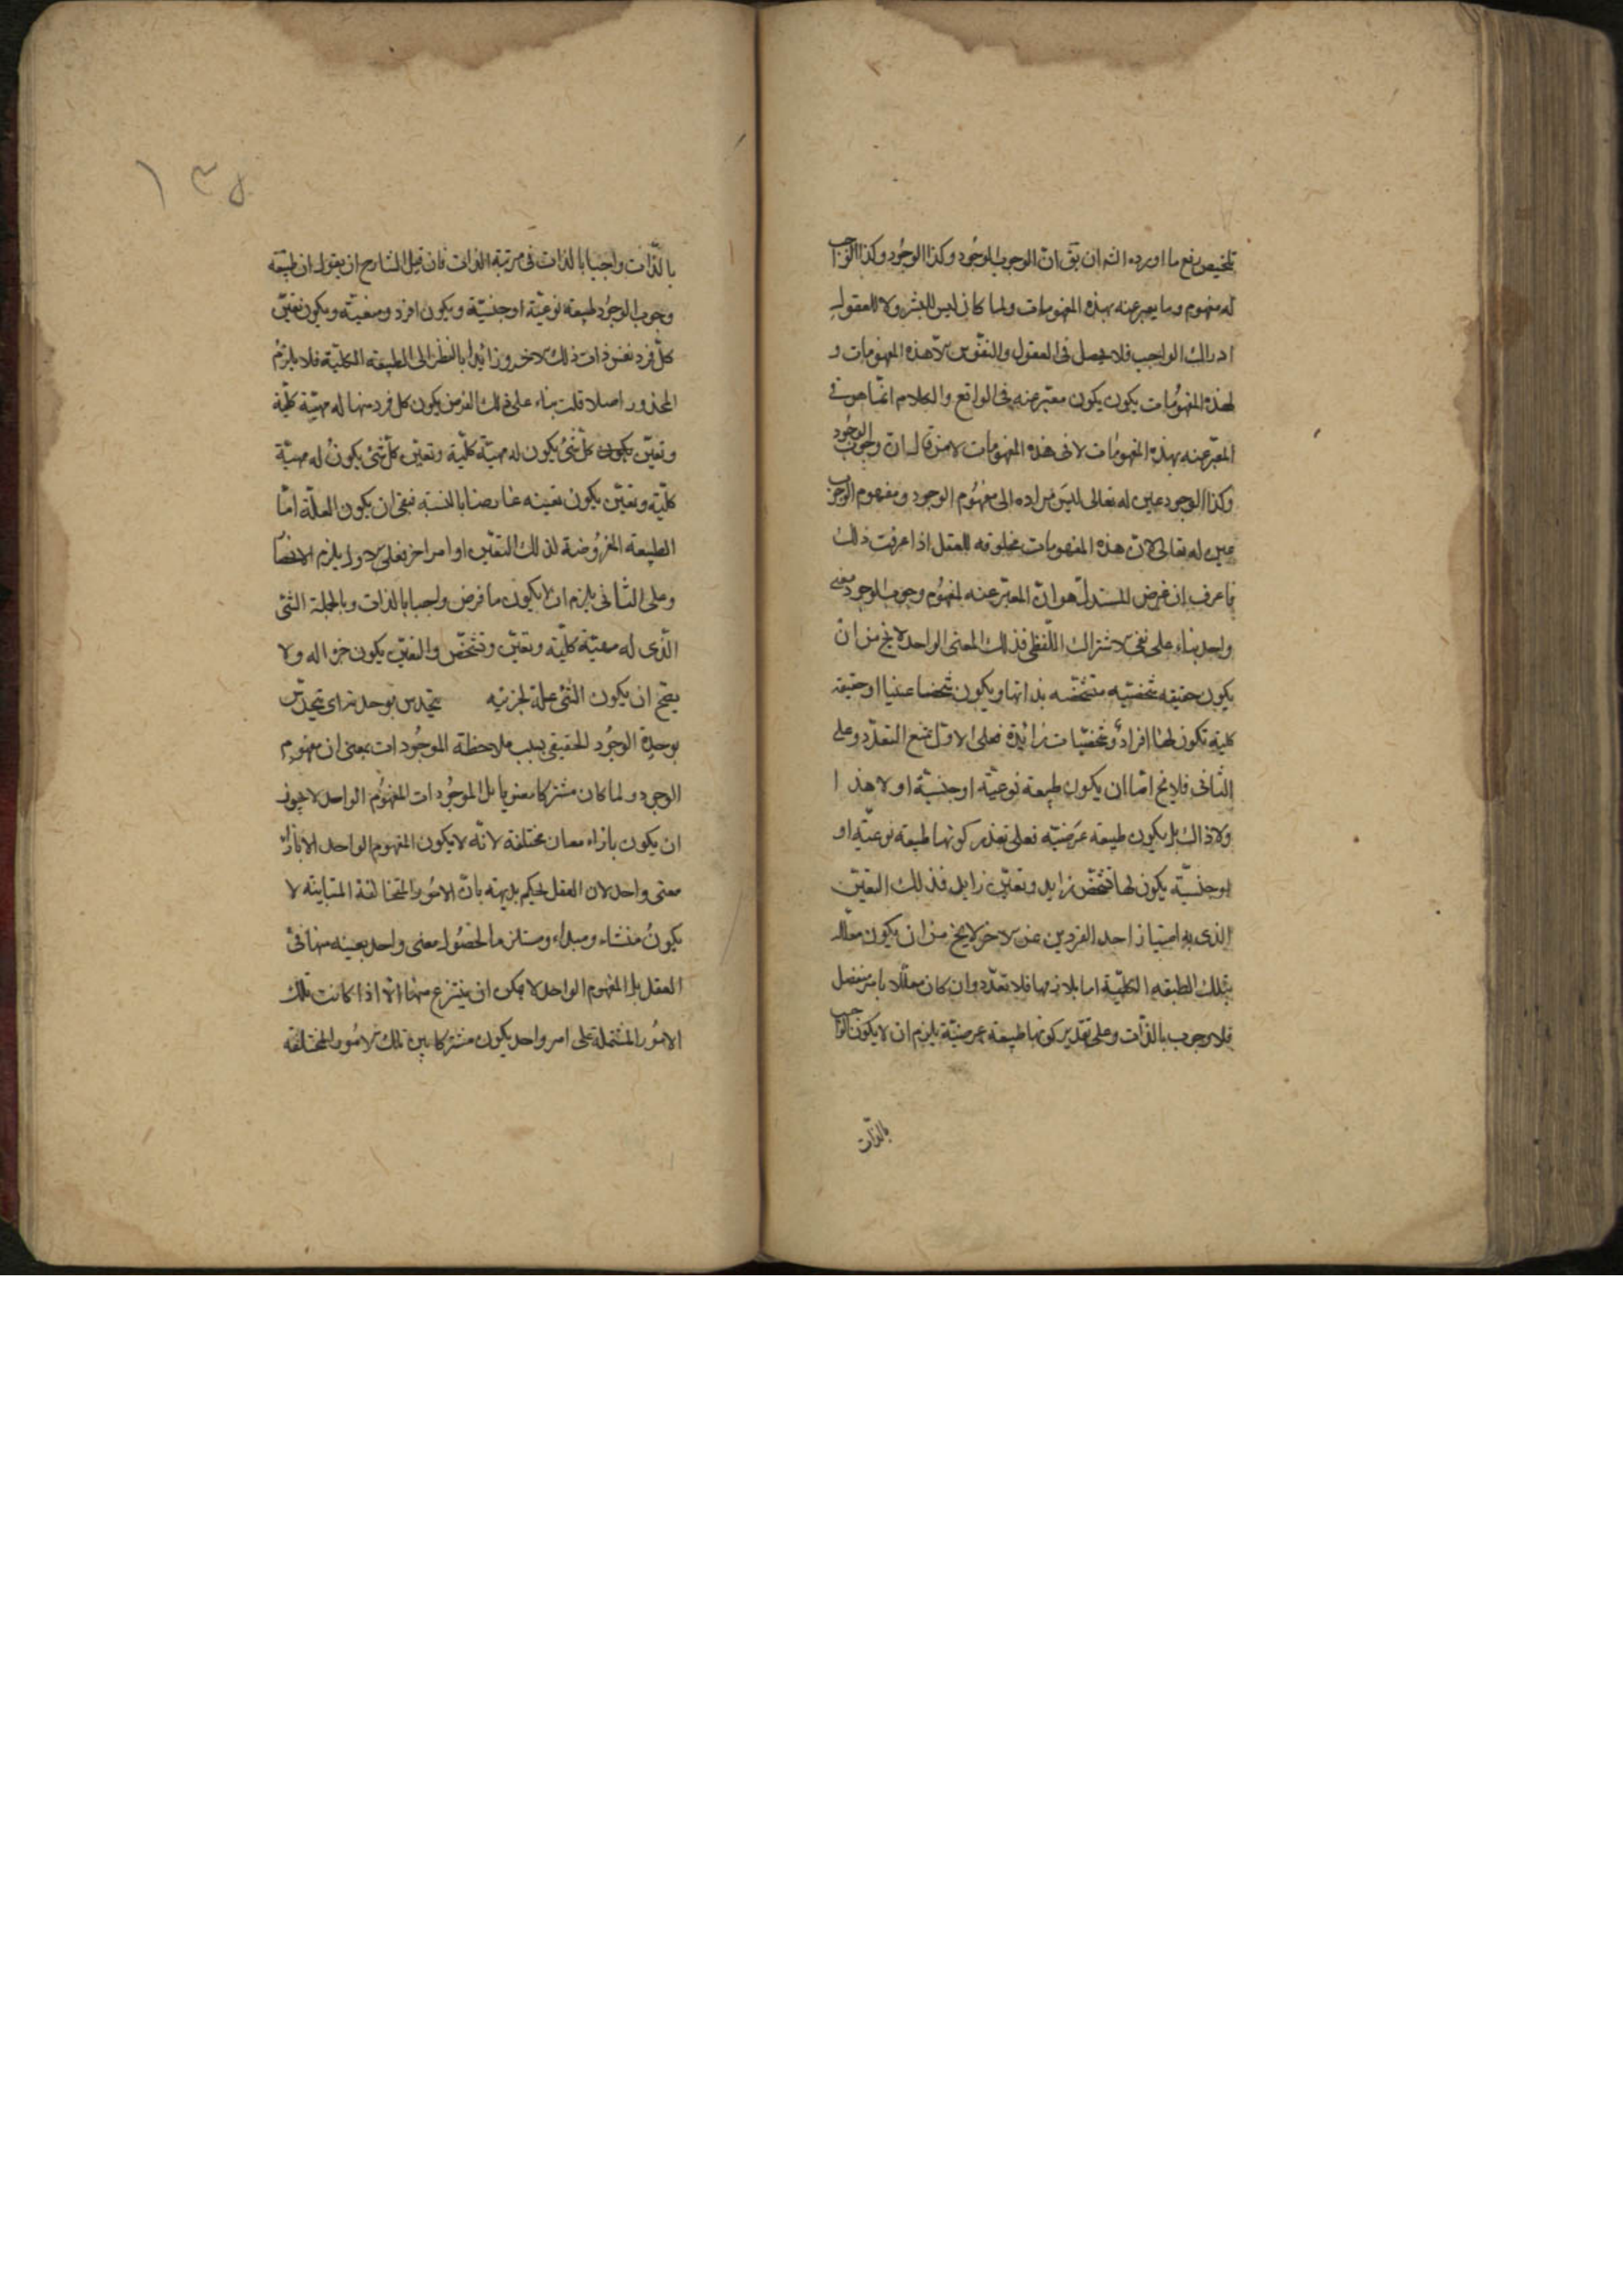 تلخيص دفع ما اورده الشه ان يق ان الوجوب الوجود وكذا الوجود وكذا الواجب
له مفهوم وما يعبر عنه بهذه المفهومات ولما كان ليس للبشر ولا للعقول
ادراك الواجب فلا يحصل فى العقول والنفوس الا هذه المفهومات و
لهذه المفهومات يكون يكون معبّر عنه فى الواقع والكلام انّما هو فى
المعبّر عنه بهذه المفهومات لا فى هذه المفهومات لا من قال ان وجوب الوجود
وكذا الوجود عين له تعالى ليس مراده الى مفهوم الوجود ومفهوم الوجوب
عين له تعالى لان هذه المفهومات مخلوقه للعقل اذا عرفت ذلك
فاعرف ان غرض المستدلّ هو انّ المعبّر عنه لمفهوم وجوب الوجود معنى
واحد بناء على نفى الاشتراك اللّفظى فذلك المعنى الواحد لا يخ من ان
يكون حقيقه شخصيّه متشخّصه بذاتها ويكون شخصا عينيا او حقيقه
كلية تكون لها افراد وتشخصّيات زائدة فعلى الاوّل يمتنع التعدّد وعلى
الثانى فلا يخ امّا ان يكون طبيعة نوعيّة او جنسيّة او لا هذا
ولا ذاك بل يكون طبيعة عرضيّه فعلى تقدير كونها طبيعة نوعيّة او
او جنسيّة يكون لها تشخّص زايد وتعيّن زايد فذلك التعيّن
الذى به امتياز احد الفردين عن الاخر لا يخ من ان يكون معلّلا
بتلك الطبقه الكليّة اما بلازمها فلا تعدّد وان كان معلّلا بامر منفصل
فلا وجوب بالذّات وعلى تقدير كونها طبيعة عرضيّة يلزم ان لا يكون الواجب
بالذّات
١٣٥
بالذّات واجبا بالذات فى مرتبة الذات فان قيل الشارح ان يقول ان طبيعة
وجوب الوجود طبيعة نوعيّة او جنسيّة ويكون افرد ومعيّنة ويكون تعيّن
كلّ فرد نفس ذات ذلك الاخر وزائدا بالنظر الى الطبيعة الكليّة فلا يلزم
المحذور اصلا قلت بناء على ذلك الفرض يكون كل فرد منها له مهيّة كليّة
وتعيّن يكون كلّ شئ يكون له مهيّة كليّة وتعيّن كلّ شئ يكون له مهيّة
كليّة وتعيّن يكون تعينه عارضا بالنسبة فبقى ان يكون العلّة امّا
الطبيعة المعروضة لذلك التعيّن او امر اخر فعلى الاول يلزم الانحصا
وعلى الثّانى يلزم ان لا يكون ما فرض واجبا بالذات وبالجملة الشئ
الّذى له مهيّة كليّة وتعيّن وتشخّص والتعيّن يكون جزا له ولا
يصّح ان يكون الشئ علة لجزئيه تحدس بوحدته اى تحدّس
بوحدة الوجود الحقيقى بسبب ملاحظة الموجودات بمعنى ان مفهوم
الوجود ولما كان مشتركا معنويا بل الموجودات المفهوم الواحد لا يجوز
ان يكون بازاء معان مختلفة لانّه لا يكون المفهوم الواحد الا بازاء
معنى واحد لان العقل يحكم بديهة بانّ الامور المتخالفة المتباينة لا
يكون منشاء ومبداء ومستلزما لحصول معنى واحد بعينه منها فى
العقل بل المفهوم الواحد لا يمكن ان ينتزع منها الا اذا كانت تلك
الامور المشتملة على امر واحد يكون مشتركا بين تلك الامور المختلفة